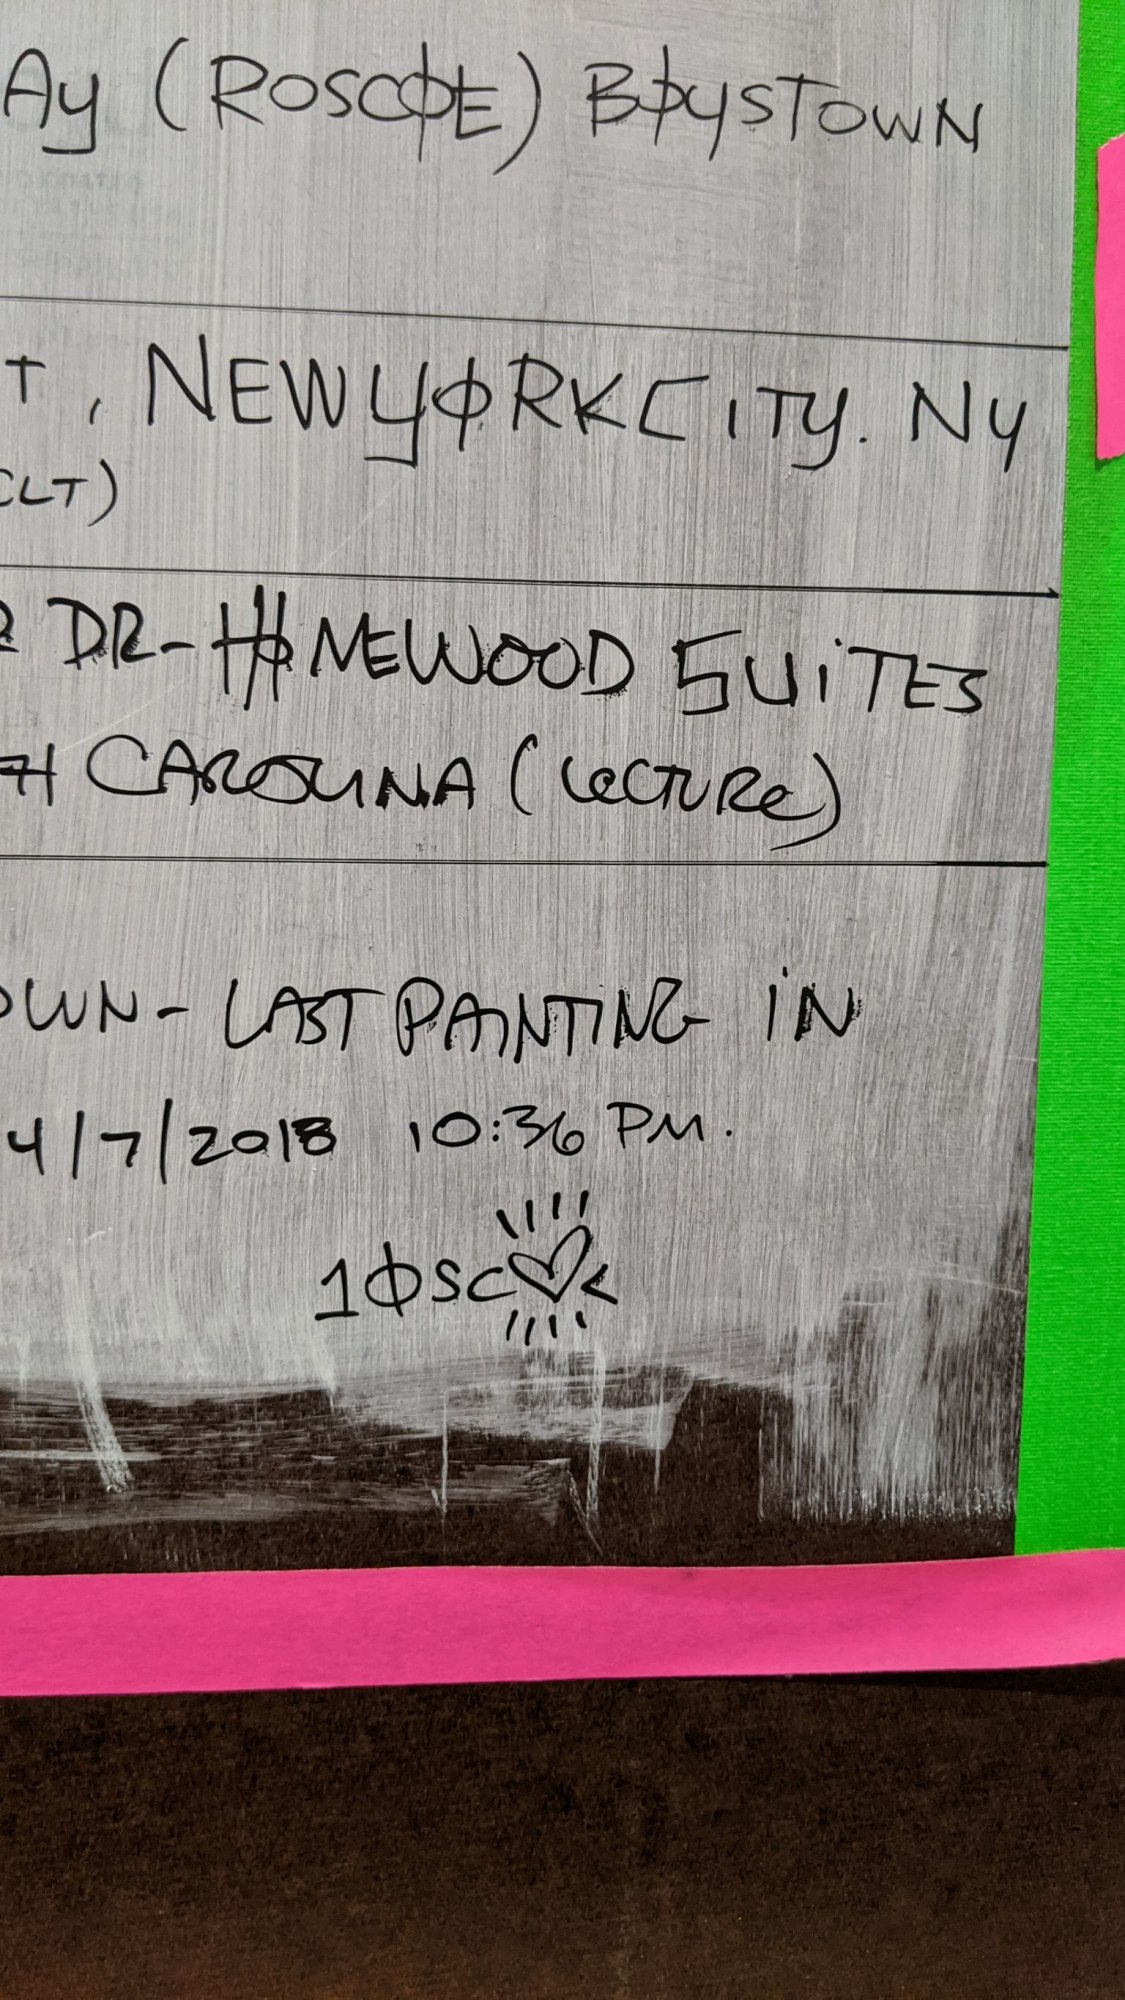 Ay (ROSCØE) BØYSTOWN
T, NEW YØRK CITY. NY
CLT)
R DR- HØMEWOOD SUITES
H CAROLINA (LECTURE)
OWN- LAST PAINTING IN
4/7/2018 10:36 PM.
1ØSC♡<